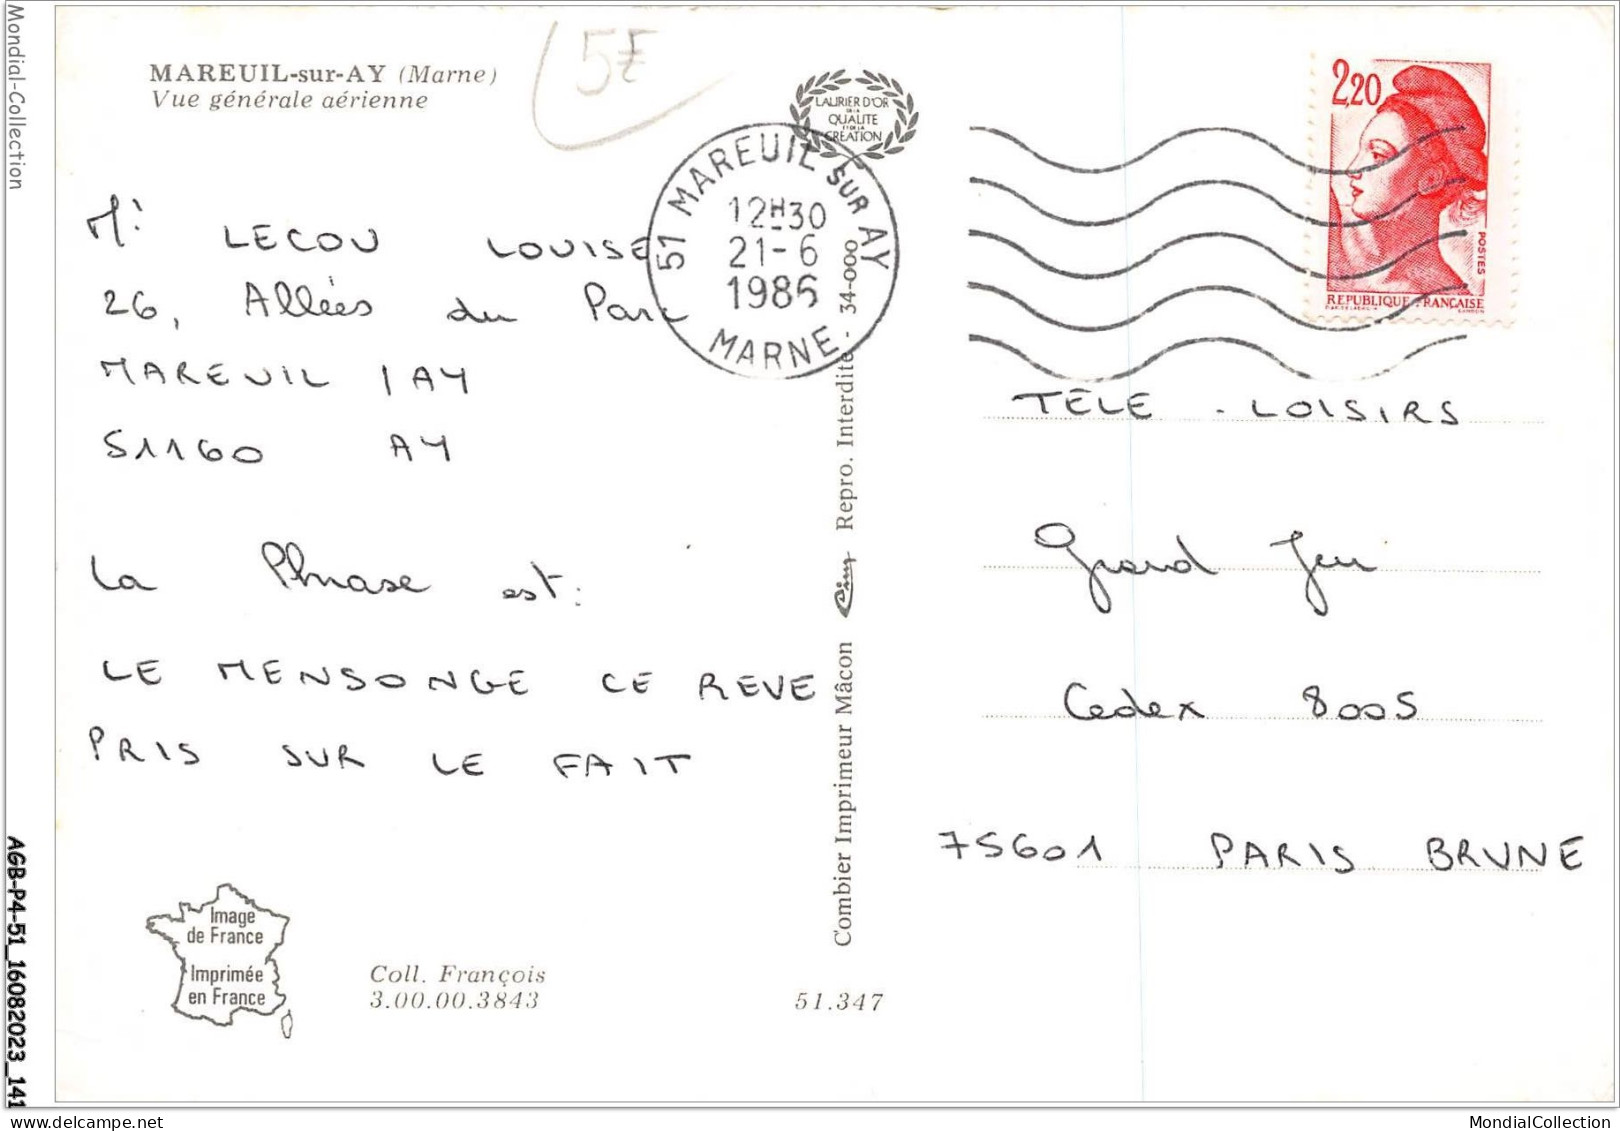 Mondial-Collection
AGB-P4-51_16082023_141
MAREUIL-sur-AY (Marne)
Vue générale aérienne
5F
LAURIER D'OR
DE LA
QUALITE
ET DE LA
CREATION
51 MAREUIL SUR AY
12H30
21-6
1986
MARNE
2,20
POSTES
REPUBLIQUE FRANÇAISE
LECOU LOUISE
26, Allées du Parc
MAREUIL / AY
51160 AY
La Phrase est:
LE MENSONGE CE REVE
PRIS SUR LE FAIT
Combier Imprimeur Mâcon Cim Repro. Interdite - 34-000
TÉLÉ - LOISIRS
Grand Jeu
Cedex 8005
75601 PARIS BRUNE
Image
de France
Imprimée
en France
Coll. François
3.00.00.3843
51.347
www.delcampe.net
MondialCollection